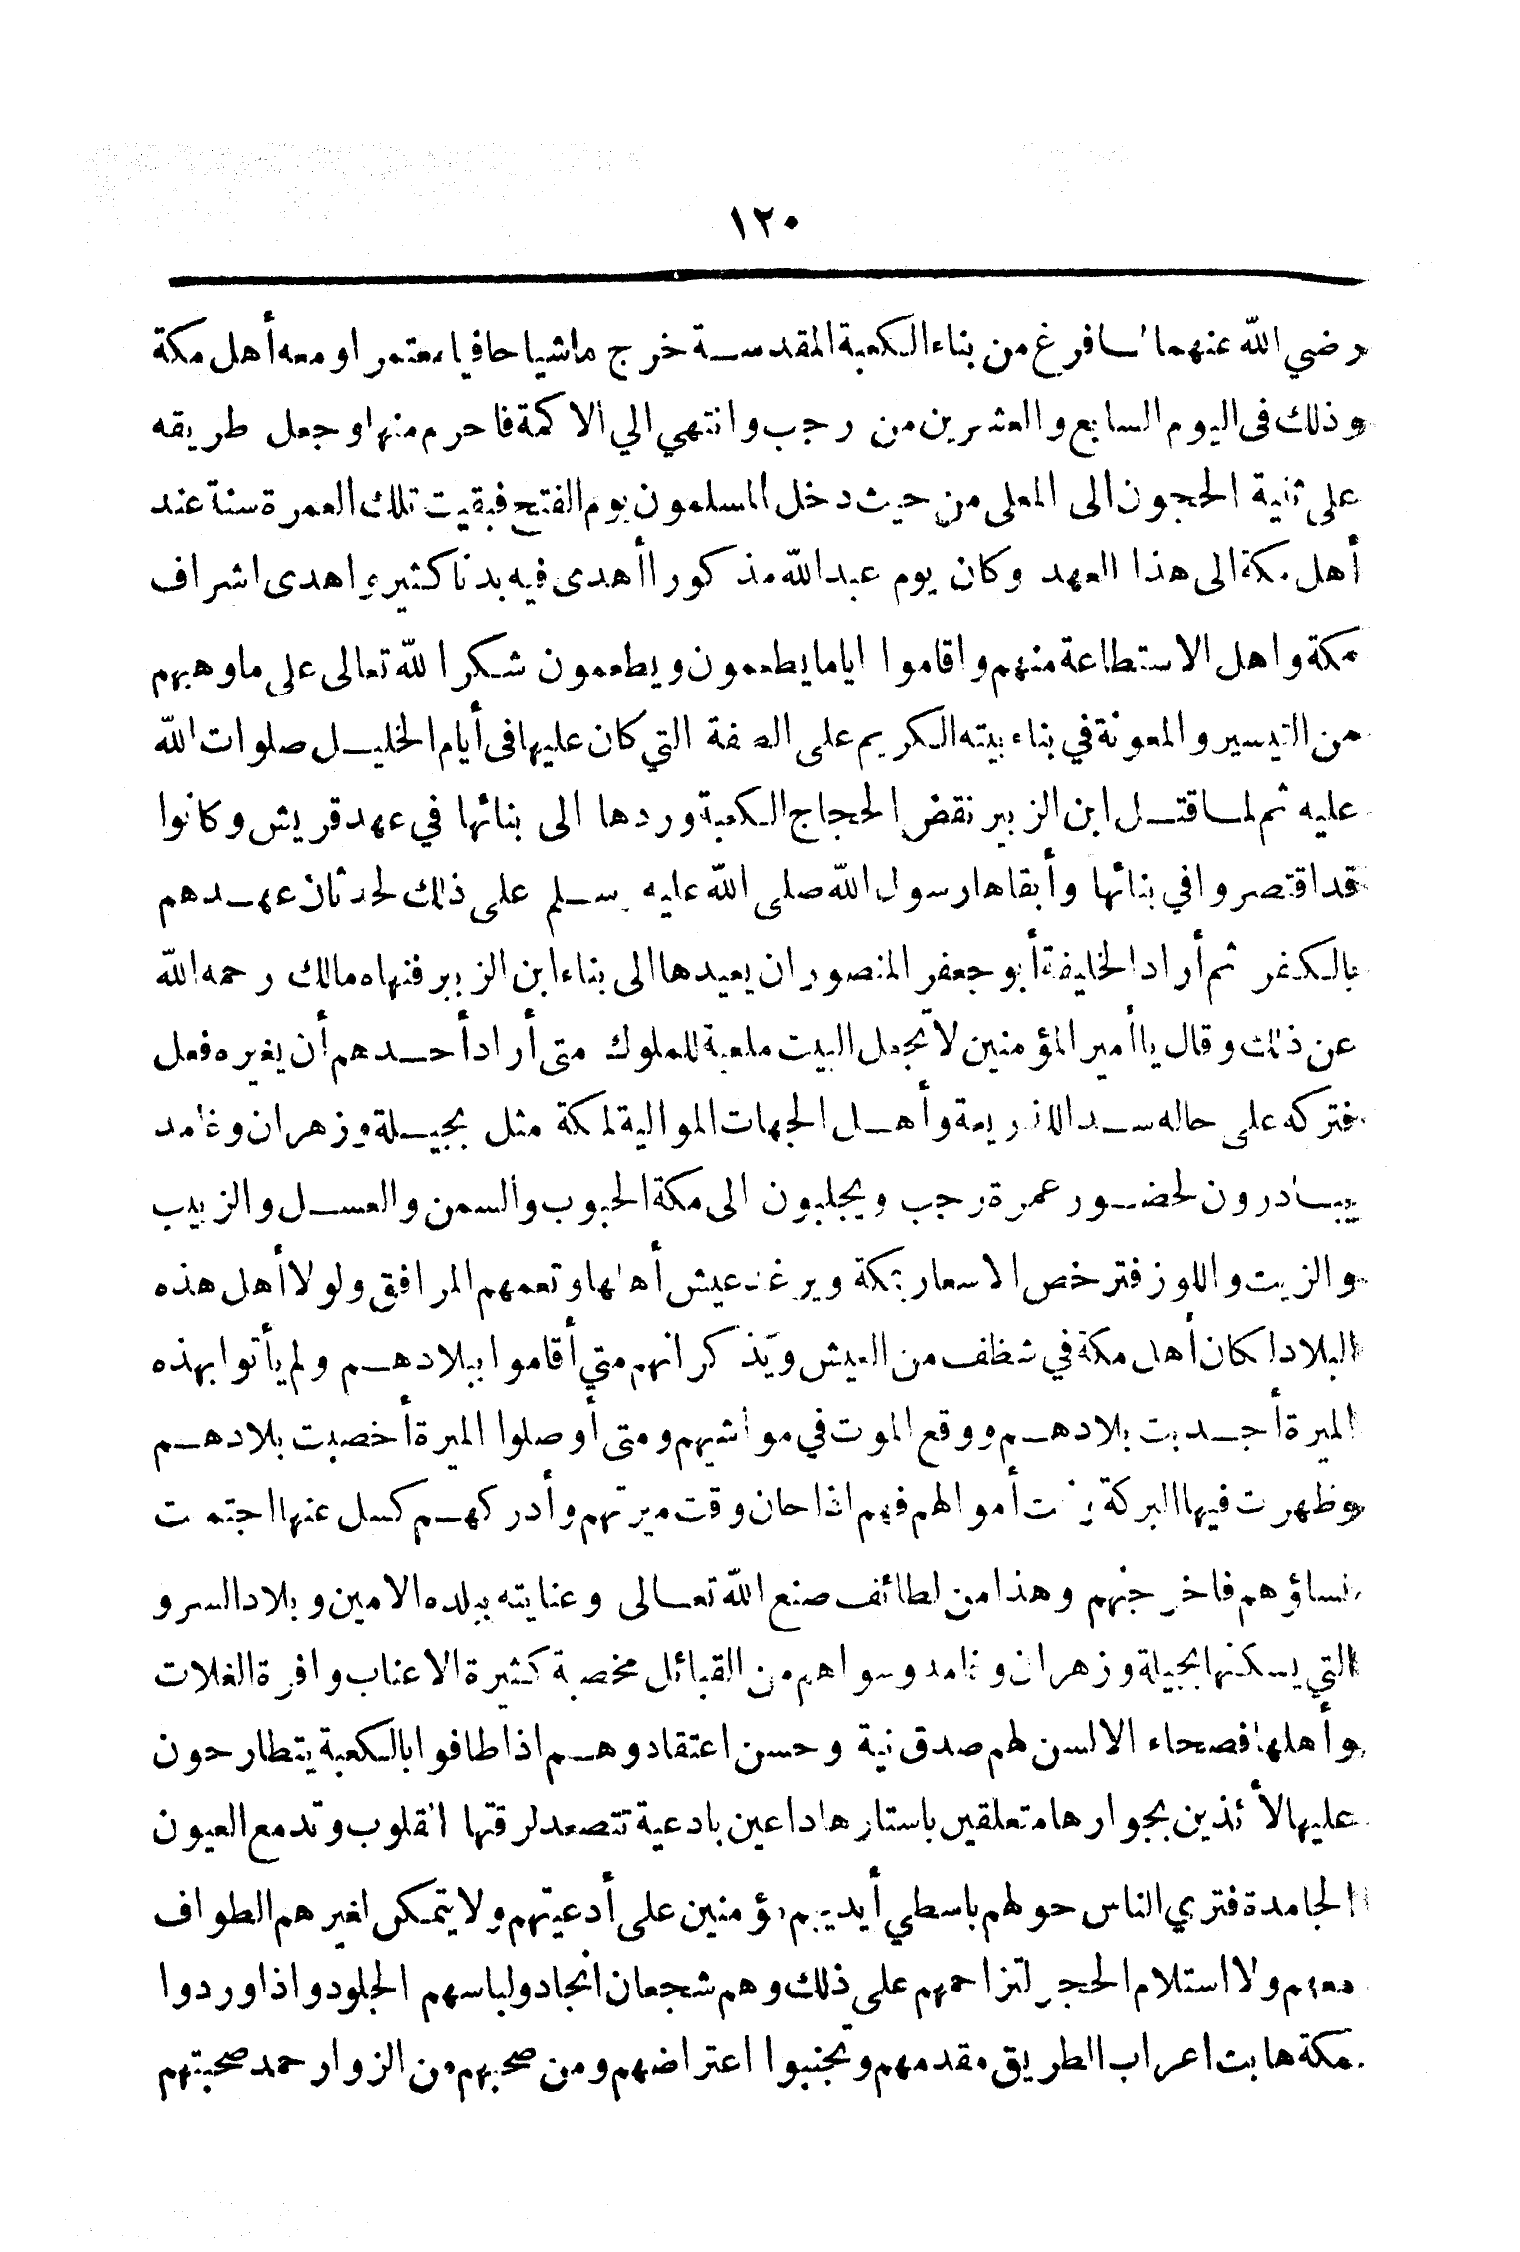 ١٢٠
رضي الله عنهما لما فرغ من بناء الكعبة المقدسة خرج ماشيا حافيا معتمرا ومعه أهل مكة
وذلك في اليوم السابع والعشرين من رجب وانتهي الي الاكمة فاحرم منها وجعل طريقه
على ثنية الحجون الى المعلى من حيث دخل المسلمون يوم الفتح فبقيت تلك العمرة سنة عند
أهل مكة الى هذا العهد وكان يوم عبد الله مذكورا أهدى فيه بدنا كثيرة واهدى اشراف
مكة واهل الاستطاعة منهم واقاموا اياما يطعمون ويطعمون شكرا لله تعالى على ما وهبهم
من التيسير والمعونة في بناء بيته الكريم على الصفة التي كان عليها في أيام الخليل صلوات الله
عليه ثم لما قتل ابن الزبير نقض الحجاج الكعبة وردها الى بنائها في عهد قريش وكانوا
قد اقتصروا في بنائها وأبقاها رسول الله صلى الله عليه وسلم على ذلك لحدثان عهدهم
بالكفر ثم أراد الخليفة أبو جعفر المنصور ان يعيدها الى بناء ابن الزبير فنهاه مالك رحمه الله
عن ذلك وقال يا أمير المؤمنين لا تجعل البيت ملعبة للملوك متى أراد أحدهم أن يغيره فعل
فتركه على حاله سدا للذريعة وأهل الجهات الموالية لمكة مثل بجيلة وزهران وغامد
يبادرون لحضور عمرة رجب ويجلبون الى مكة الحبوب والسمن والعسل والزبيب
والزيت واللوز فترخص الاسعار بمكة ويرغد عيش أهلها وتعمهم المرافق ولولا أهل هذه
البلاد لكان أهل مكة في شظف من العيش ويذكر انهم متي أقاموا ببلادهم ولم يأتوا بهذه
الميرة أجدبت بلادهم ووقع الموت في مواشيهم ومتى أوصلوا الميرة أخصبت بلادهم
وظهرت فيها البركة ونمت أموالهم فهم اذا حان وقت ميرتهم وأدركهم كسل عنها اجتمعت
نساؤهم فاخرجنهم وهذا من لطائف صنع الله تعالى وعنايته ببلده الامين وبلاد السرو
التي يسكنها بجيلة وزهران وغامد وسواهم من القبائل مخصبة كثيرة الاعناب وافرة الغلات
وأهلها فصحاء الالسن لهم صدق نية وحسن اعتقاد وهم اذا طافوا بالكعبة يتطارحون
عليها لائذين بجوارها متعلقين باستارها داعين بادعية تتصعد لرقتها القلوب وتدمع العيون
الجامدة فتري الناس حولهم باسطي أيديهم مؤمنين على أدعيتهم ولا يتمكن لغيرهم الطواف
معهم ولا استلام الحجر لتزاحمهم علي ذلك وهم شجعان انجاد ولباسهم الجلود واذا وردوا
مكة هابت اعراب الطريق مقدمهم وتجنبوا اعتراضهم ومن صحبهم من الزوار حمد صحبتهم